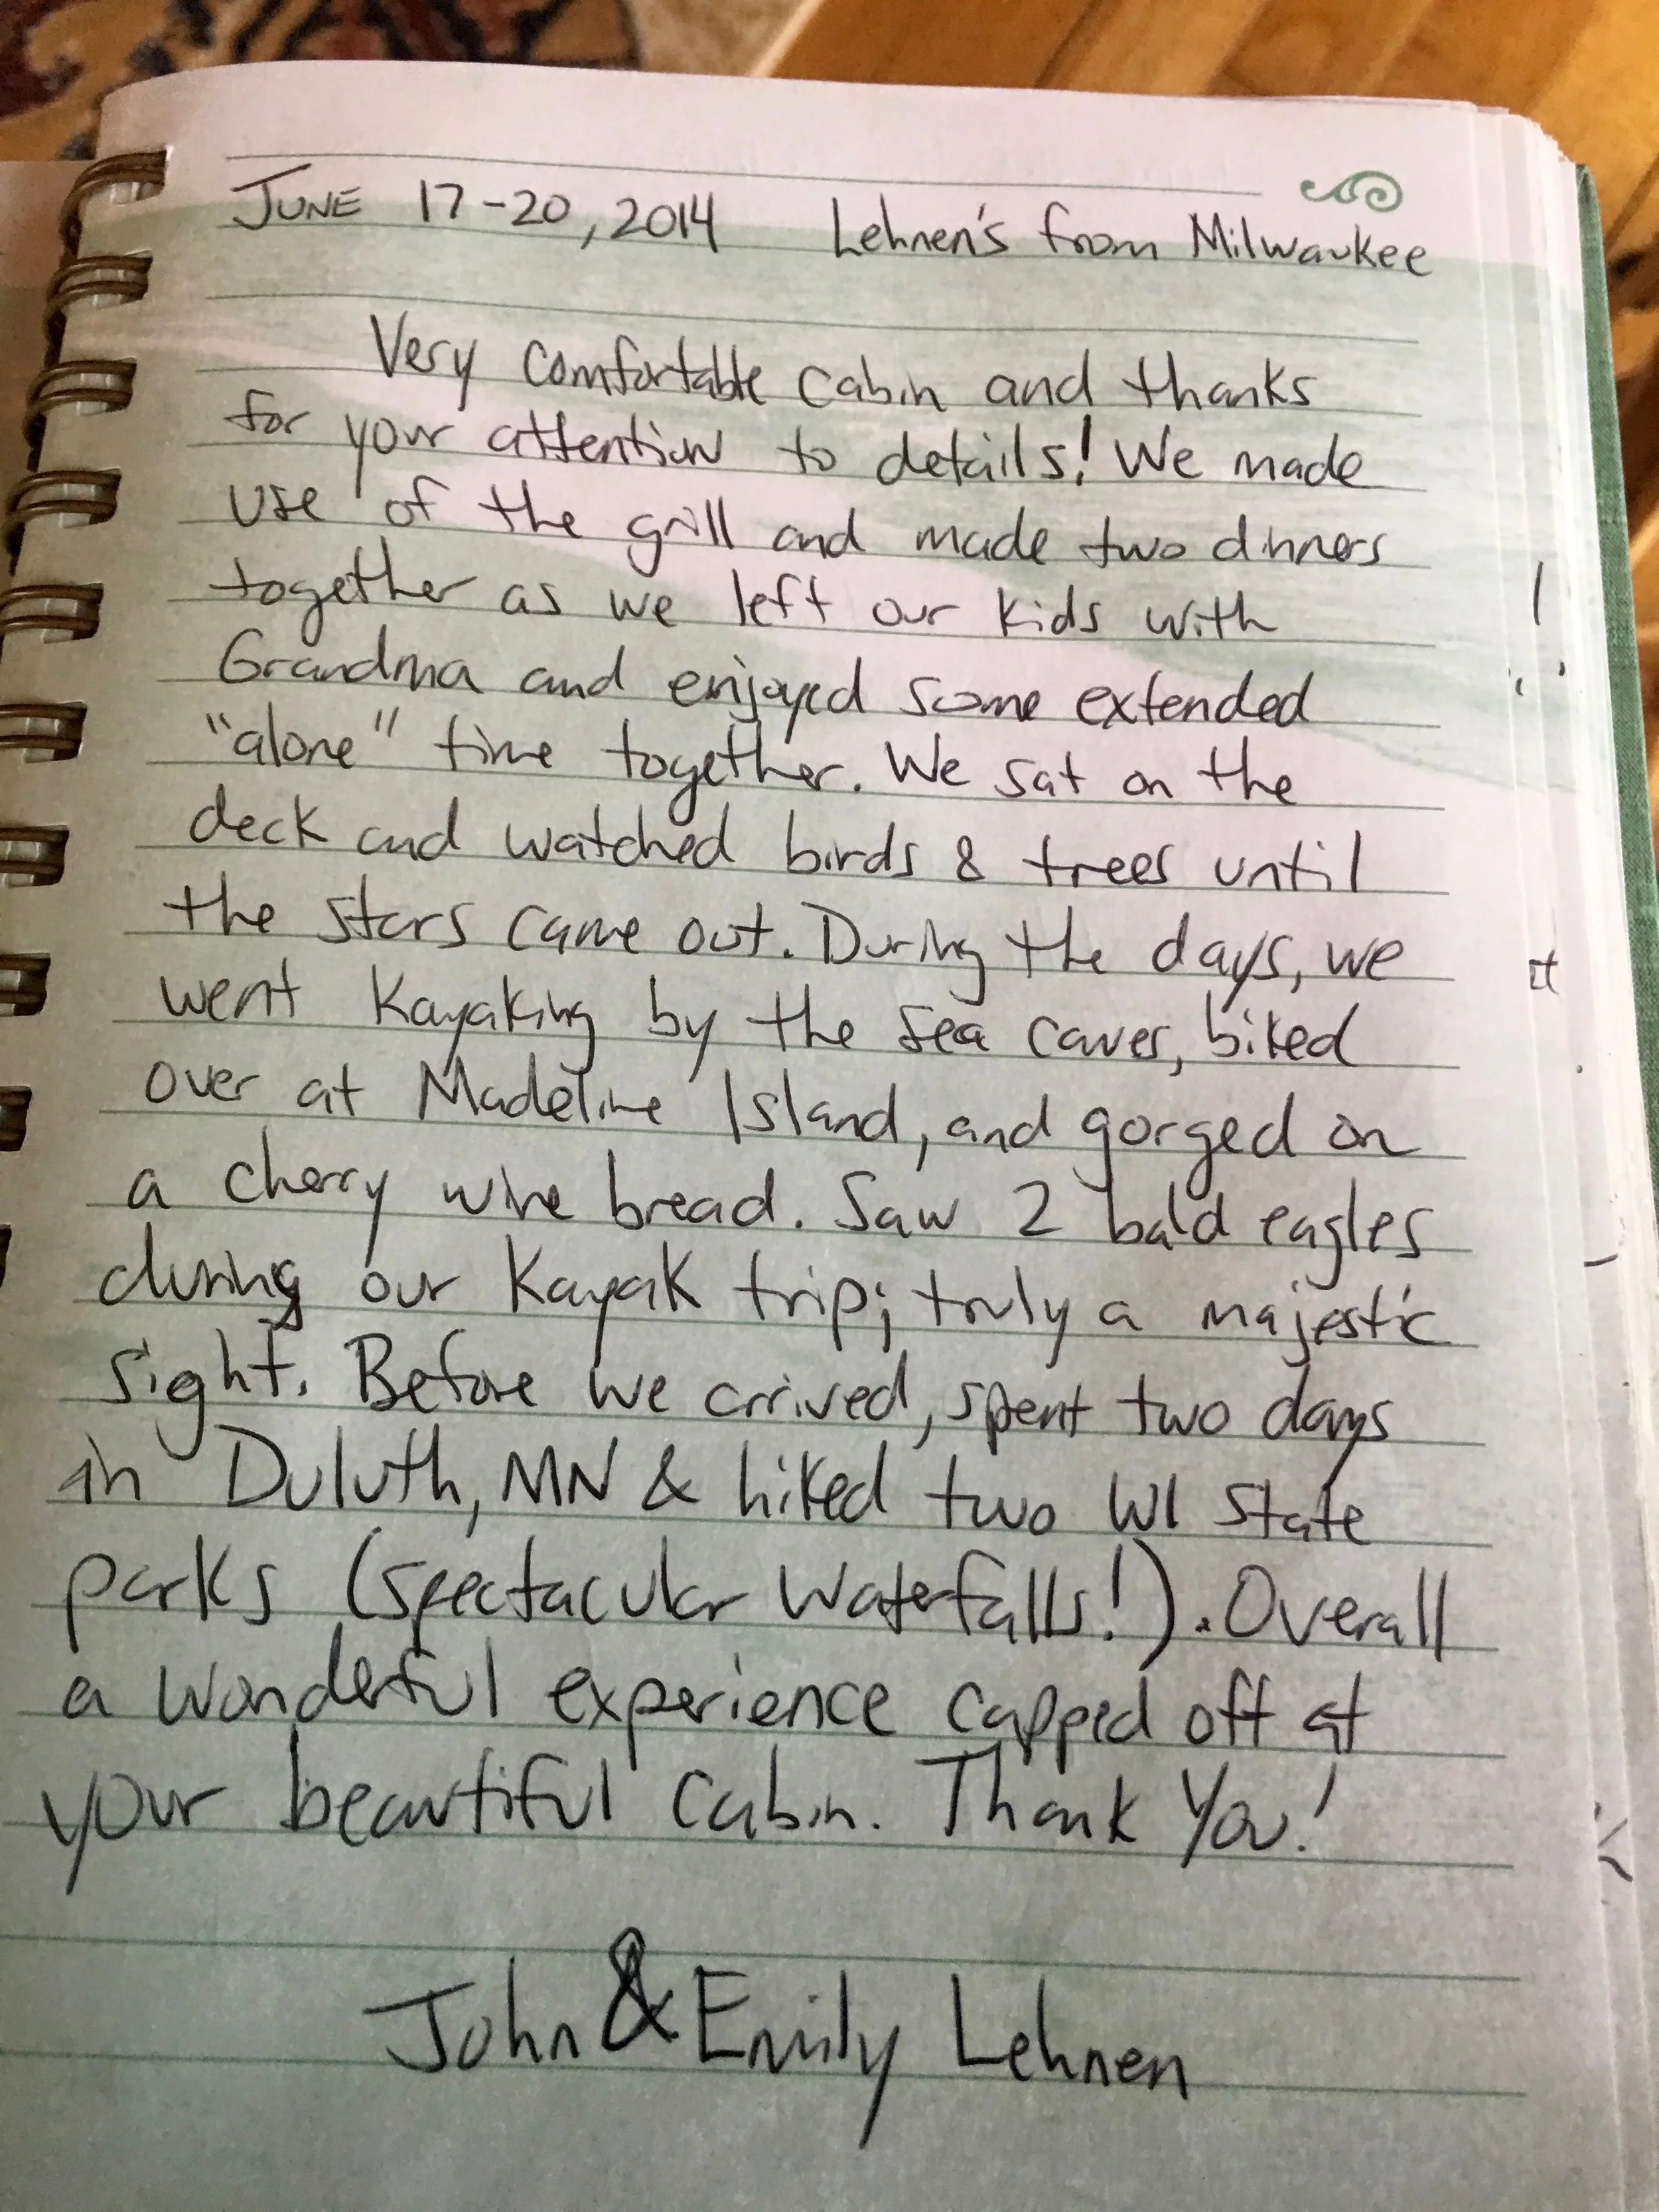 JUNE 17-20, 2014 Lehnen's from Milwaukee
Very comfortable cabin and thanks
for your attention to details! We made
use of the grill and made two dinners
together as we left our kids with
Grandma and enjoyed some extended
"alone" time together. We sat on the
deck and watched birds & trees until
the stars came out. During the days, we
went kayaking by the sea caves, biked
over at Madeline Island, and gorged on
a cherry wine bread. Saw 2 bald eagles
during our kayak trip; truly a majestic
sight. Before we arrived, spent two days
in Duluth, MN & hiked two WI State
parks (spectacular waterfalls!). Overall
a wonderful experience capped off at
your beautiful cabin. Thank You!
John & Emily Lehnen